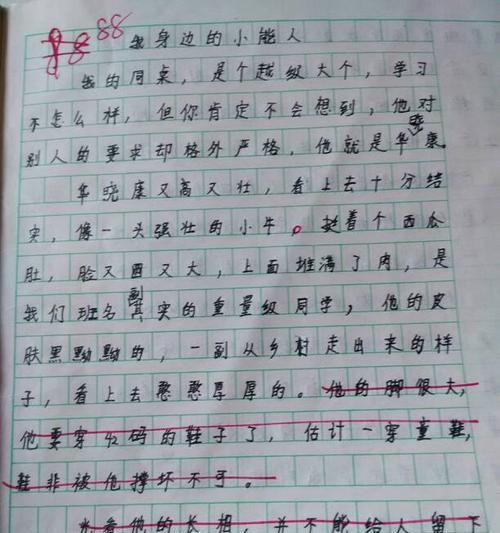 88
我身边的小能人
我的同桌，是个超级大个，学习
不怎么样，但你肯定不会想到，他对
别人的要求却格外严格，他就是华晓康
华晓康又高又壮，看上去十分结
实，像一头强壮的小牛。挺着个西瓜
肚，脸又圆又大，上面堆满了肉，是
我们班名副其实的重量级同学，他的皮
肤黑黝黝的，一副从乡村走出来的样
子，看上去憨憨厚厚的。他的脚很大，
他要穿42码的鞋子了，估计一穿童鞋，
鞋非被他撑坏不可。
光看他的长相，并不能给人留下